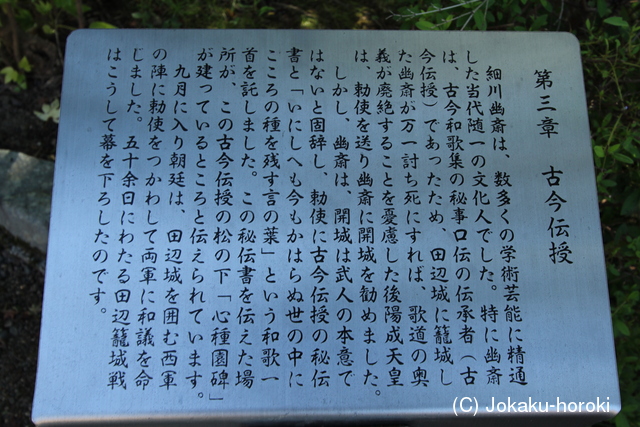 第三章　古今伝授
細川幽斎は、数多くの学術芸能に精通
した当代随一の文化人でした。特に幽斎
は、古今和歌集の秘事口伝の伝承者（古
今伝授）であったため、田辺城に籠城し
た幽斎が万一討ち死にすれば、歌道の奥
義が廃絶することを憂慮した後陽成天皇
は、勅使を送り幽斎に開城を勧めました。
しかし、幽斎は、開城は武人の本意で
はないと固辞し、勅使に古今伝授の秘伝
書と「いにしへも今もかはらぬ世の中に
こころの種を残す言の葉」という和歌一
首を託しました。この秘伝書を伝えた場
所が、この古今伝授の松の下「心種園碑」
が建っているところと伝えられています。
九月に入り朝廷は、田辺城を囲む西軍
の陣に勅使をつかわして両軍に和議を命
じました。五十余日にわたる田辺籠城戦
はこうして幕を下ろしたのです。
(C) Jokaku-horoki